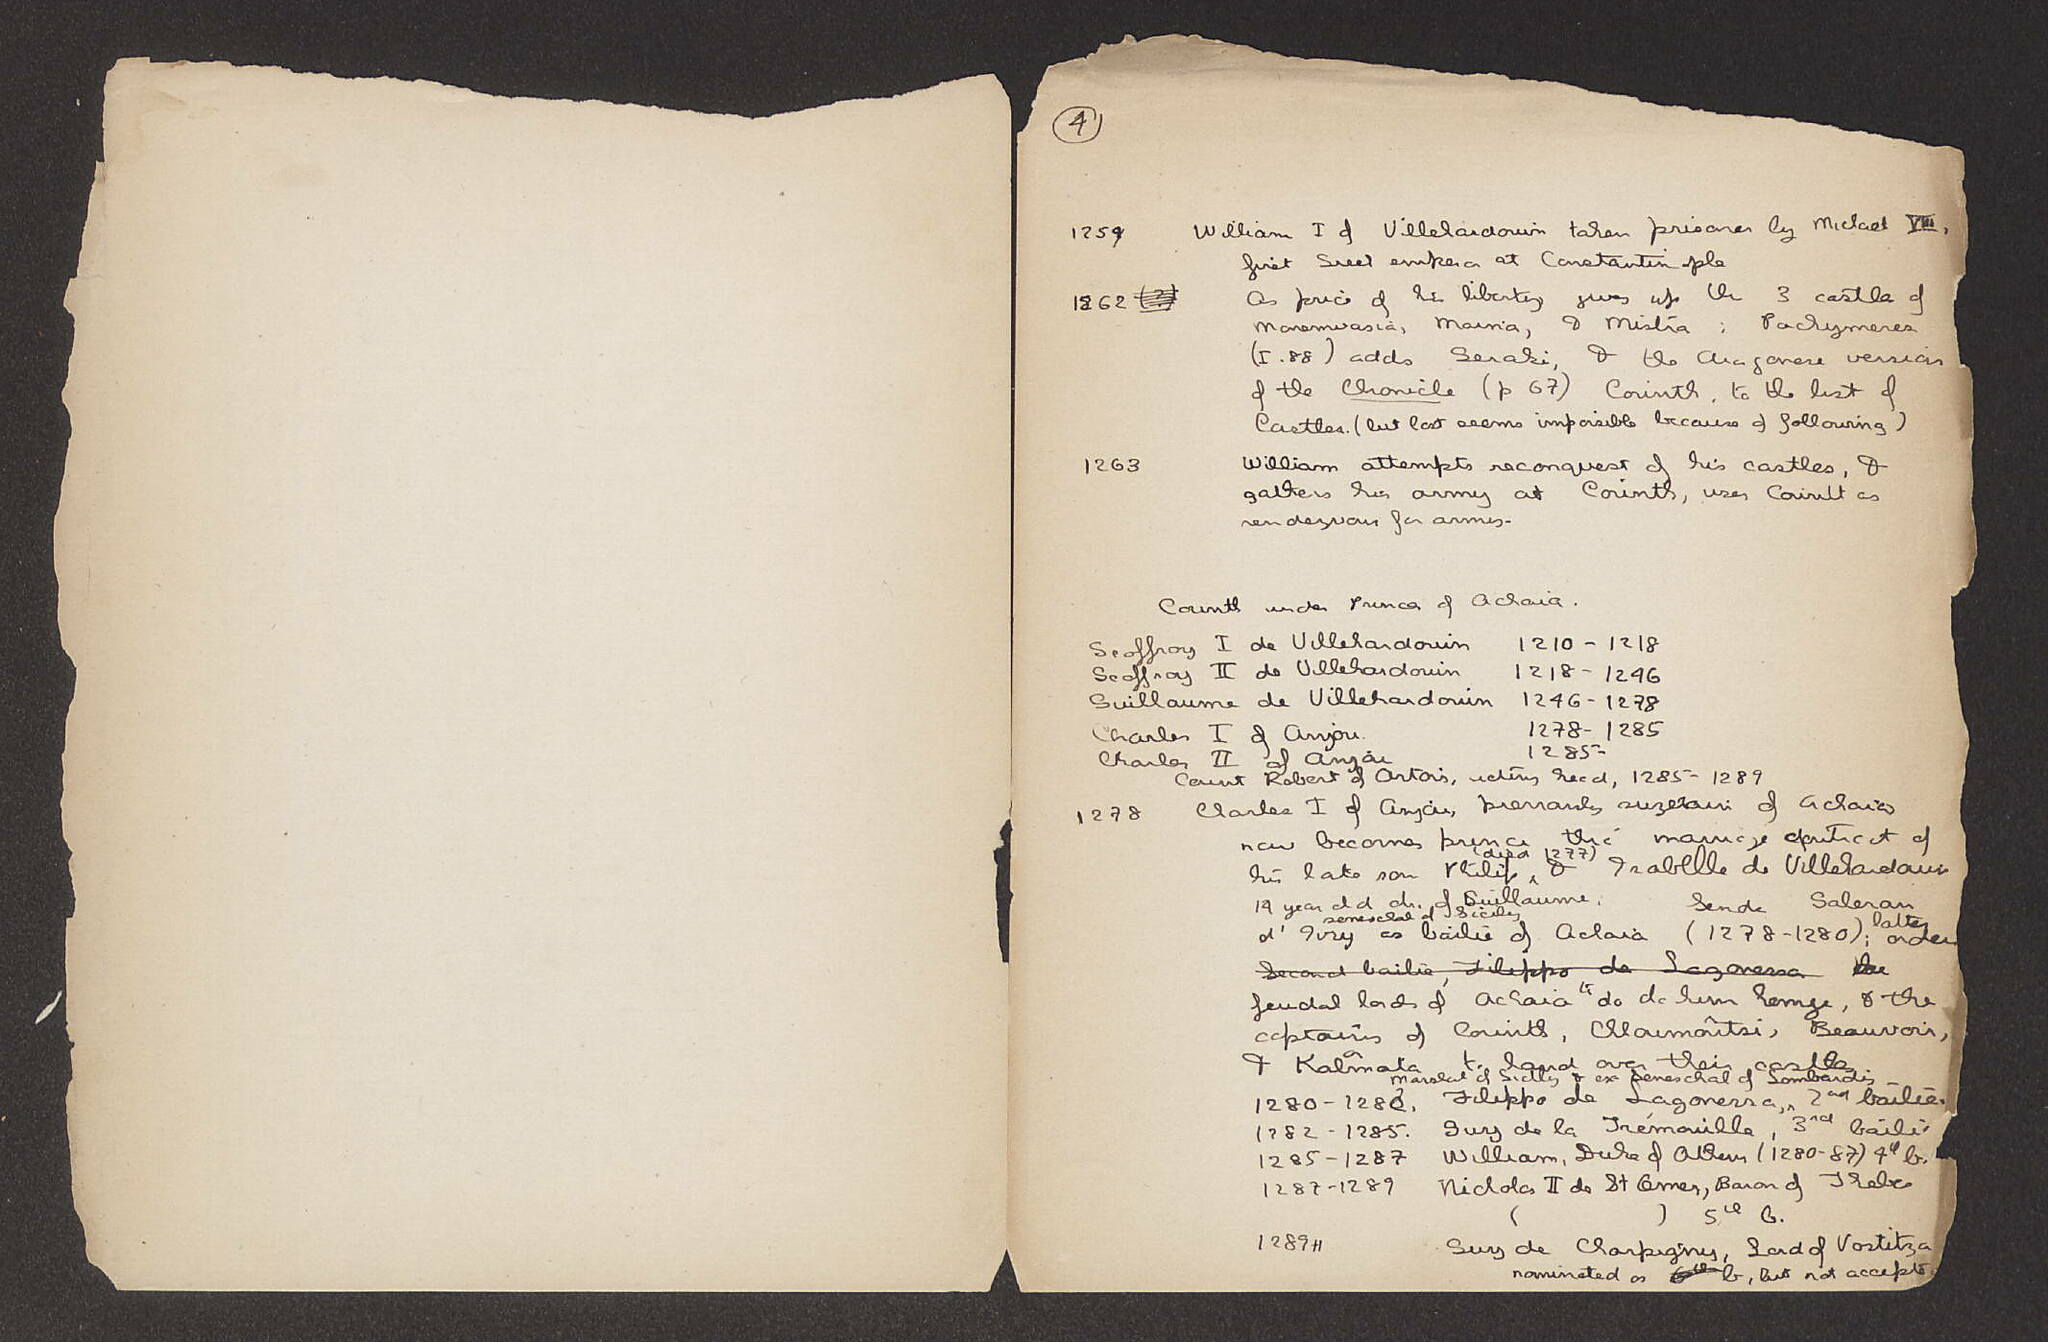 4
1259 William I of Villehardouin taken prisoner by Michael VIII,
first Greek emperor at Constantinople
1262 (?) As price of his liberty gives up the 3 castles of
Monemvasia, Maina, & Mistra; Pachymeres
(I.88) adds Geraki, & the Aragonese version
of the Chronicle (p 67) Corinth, to the list of
Castles. (but last seems impossible because of following)
1263 William attempts reconquest of his castles, &
gathers his army at Corinth, uses Corinth as
rendezvous for armies.
Corinth under Princes of Achaia.
Geoffroy I de Villehardouin 1210 - 1218
Geoffroy II de Villehardouin 1218 - 1246
Guillaume de Villehardouin 1246 - 1278
Charles I of Anjou. 1278 - 1285
Charles II of Anjou 1285 -
Count Robert of Artois, acting head, 1285 - 1289
1278 Charles I of Anjou, previously suzerain of Achaia
now becomes prince thru marriage contract of
his late son Philip (died 1277), & Isabelle de Villehardouin
19 year old dr. of Guillaume. Sends Galeran
d'Ivry seneschal of Sicily as bailie of Achaia (1278-1280); latter orders
Second bailie, Filippo de Lagonessa the
feudal lords of Achaia to do do him homge, & the
captains of Corinth, Chloumoûtsi, Beauvoir,
& Kalâmata to hand over their castles
1280 - 1282, Filippo de Lagonessa, marshal of Sicily & ex seneschal of Lombardy 2nd bailie.
1282 - 1285. Guy de la Trémouille, 3rd bailie
1285 - 1287 William, Duke of Athens (1280-87) 4th b.
1287 - 1289 Nicholas II de St Omer, Baron of Thebes
( ) 5th b.
1289 Guy de Charpigny, Lord of Vostitza
nominated as 6th b, but not accepted